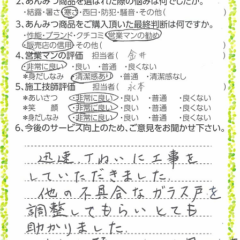 2.あんみつ商品を選ばれた際の悩みは何でしたか。
・結露・暑さ・寒さ・西日・防犯・騒音・その他(
3.あんみつ商品をご購入頂いた最終判断は何ですか。
・性能・ブランド・クチコミ・営業マンの勧め
・販売店の信用・その他(
4.営業マンの評価 担当者( 金井
・非常に良い ・良い ・普通 ・良くない
*身だしなみ ・清潔感あり ・普通 ・清潔感なし
5.施工技術師評価 担当者(
*あいさつ ・非常に良い ・良い ・普通 ・良くない
*笑 顔 ・非常に良い ・良い ・普通 ・良くない
*身だしなみ ・非常に良い ・良い ・普通 ・良くない
6.今後のサービス向上のため、ご意見をお聞かせ下さい。
迅速、丁ねいに工事を
していただきました。
他の不具合なガラス戸を
調整してもらいとても
助かりました。